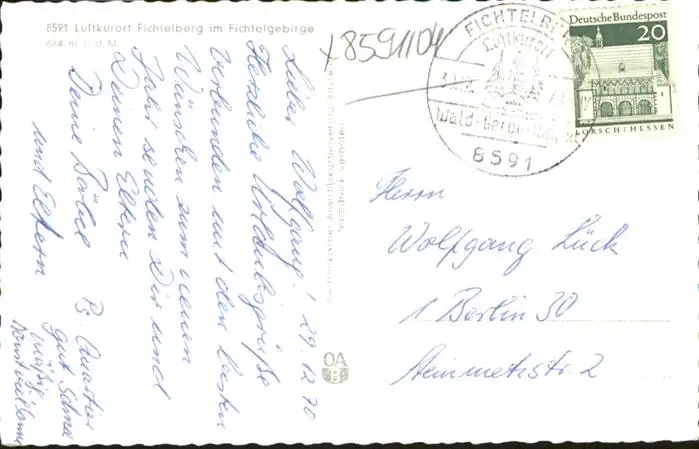 8591 Luftkurort Fichtelberg im Fichtelgebirge
684 m ü. d. M.
x8591104
Lieber Wolfgang! 29.12.70
Herzliche Urlaubsgrüße
verbunden mit den besten
Wünschen zum neuen
Jahr senden Dir und
Deinen Eltern
Deine
und Eltern
Ps. Quartier
gut Schnee
mäßig
Nachdruck verboten
OA
FICHTELBERG
Luftkurort
Wald
8591
Deutsche Bundespost
20
LORSCH/HESSEN
Herrn
Wolfgang Lück
1 Berlin 30
Steinmetzstr. 2